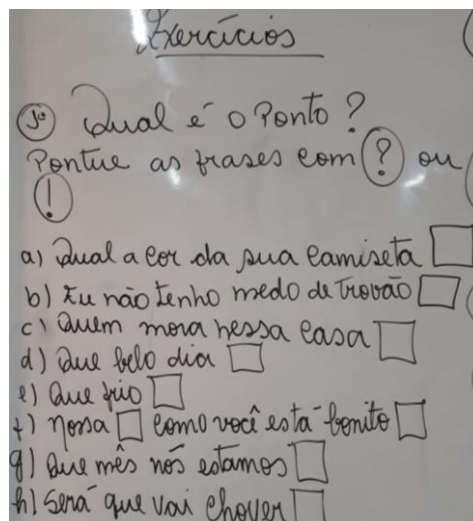 Exercícios
1º Qual é o Ponto?
Pontue as frases com ? ou
!
a) Qual a cor da sua camiseta □
b) Eu não tenho medo de Trovão □
c) Quem mora nessa casa □
d) Que belo dia □
e) Que frio □
f) nossa □ como você está bonito □
g) Que mês nós estamos □
h) Será que vai chover □